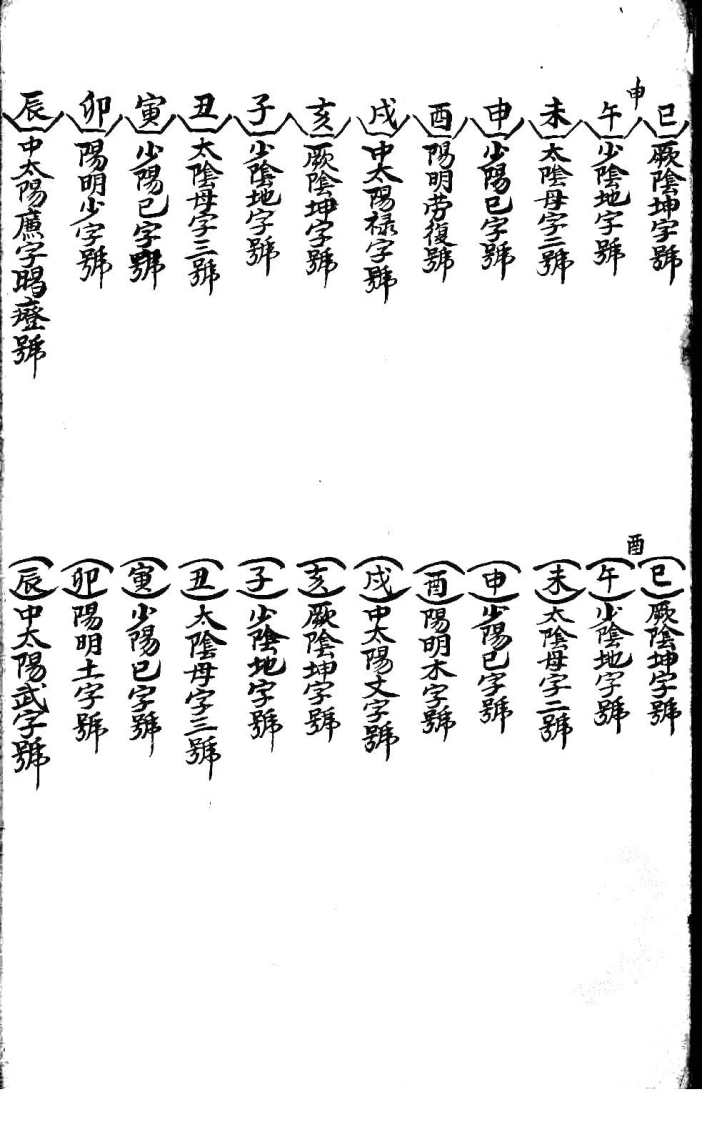 申
巳 厥陰坤字號
午 少陰地字號
未 太陰母字二號
申 少陽巳字號
酉 陽明劳復號
戌 中太陽祿字號
亥 厥陰坤字號
子 少陰地字號
丑 太陰母字三號
寅 少陽巳字號
卯 陽明少字號
辰 中太陽字號
酉
巳 厥陰坤字號
午 少陰地字號
未 太陰母字二號
申 少陽巳字號
酉 陽明木字號
戌 中太陽文字號
亥 厥陰坤字號
子 少陰地字號
丑 太陰母字三號
寅 少陽巳字號
卯 陽明土字號
辰 中太陽武字號